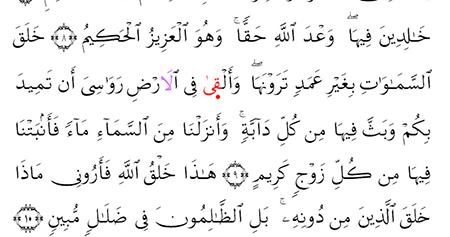 خَٰلِدِينَ فِيهَاۖ وَعْدَ ٱللَّهِ حَقًّاۚ وَهُوَ ٱلْعَزِيزُ ٱلْحَكِيمُ ﴿٨﴾ خَلَقَ
ٱلسَّمَٰوَٰتِ بِغَيْرِ عَمَدٍ تَرَوْنَهَاۖ وَأَلْقَىٰ فِى ٱلْأَرْضِ رَوَٰسِىَ أَن تَمِيدَ
بِكُمْ وَبَثَّ فِيهَا مِن كُلِّ دَآبَّةٍۚ وَأَنزَلْنَا مِنَ ٱلسَّمَآءِ مَآءً فَأَنۢبَتْنَا
فِيهَا مِن كُلِّ زَوْجٍ كَرِيمٍ ﴿٩﴾ هَٰذَا خَلْقُ ٱللَّهِ فَأَرُونِى مَاذَا
خَلَقَ ٱلَّذِينَ مِن دُونِهِۦۚ بَلِ ٱلظَّٰلِمُونَ فِى ضَلَٰلٍ مُّبِينٍ ﴿١٠﴾